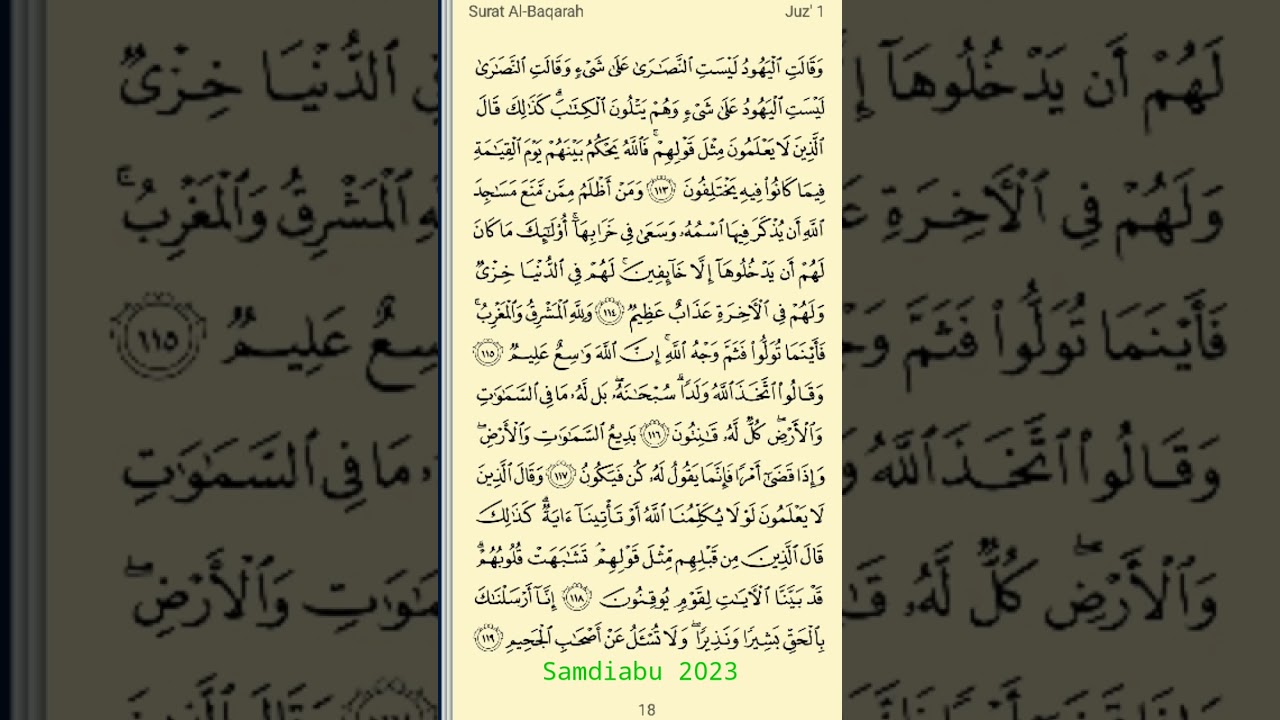 Surat Al-Baqarah Juz' 1
وَقَالَتِ ٱلْيَهُودُ لَيْسَتِ ٱلنَّصَٰرَىٰ عَلَىٰ شَىْءٍ وَقَالَتِ ٱلنَّصَٰرَىٰ
لَيْسَتِ ٱلْيَهُودُ عَلَىٰ شَىْءٍ وَهُمْ يَتْلُونَ ٱلْكِتَٰبَ ۗ كَذَٰلِكَ قَالَ
ٱلَّذِينَ لَا يَعْلَمُونَ مِثْلَ قَوْلِهِمْ ۚ فَٱللَّهُ يَحْكُمُ بَيْنَهُمْ يَوْمَ ٱلْقِيَٰمَةِ
فِيمَا كَانُوا۟ فِيهِ يَخْتَلِفُونَ ١١٣ وَمَنْ أَظْلَمُ مِمَّن مَّنَعَ مَسَٰجِدَ
ٱللَّهِ أَن يُذْكَرَ فِيهَا ٱسْمُهُۥ وَسَعَىٰ فِى خَرَابِهَآ ۚ أُو۟لَٰٓئِكَ مَا كَانَ
لَهُمْ أَن يَدْخُلُوهَآ إِلَّا خَآئِفِينَ ۚ لَهُمْ فِى ٱلدُّنْيَا خِزْىٌ
وَلَهُمْ فِى ٱلْءَاخِرَةِ عَذَابٌ عَظِيمٌ ١١٤ وَلِلَّهِ ٱلْمَشْرِقُ وَٱلْمَغْرِبُ ۚ
فَأَيْنَمَا تُوَلُّوا۟ فَثَمَّ وَجْهُ ٱللَّهِ ۚ إِنَّ ٱللَّهَ وَٰسِعٌ عَلِيمٌ ١١٥
وَقَالُوا۟ ٱتَّخَذَ ٱللَّهُ وَلَدًا ۗ سُبْحَٰنَهُۥ ۖ بَل لَّهُۥ مَا فِى ٱلسَّمَٰوَٰتِ
وَٱلْأَرْضِ ۖ كُلٌّ لَّهُۥ قَٰنِتُونَ ١١٦ بَدِيعُ ٱلسَّمَٰوَٰتِ وَٱلْأَرْضِ ۖ
وَإِذَا قَضَىٰٓ أَمْرًا فَإِنَّمَا يَقُولُ لَهُۥ كُن فَيَكُونُ ١١٧ وَقَالَ ٱلَّذِينَ
لَا يَعْلَمُونَ لَوْلَا يُكَلِّمُنَا ٱللَّهُ أَوْ تَأْتِينَآ ءَايَةٌ ۗ كَذَٰلِكَ
قَالَ ٱلَّذِينَ مِن قَبْلِهِم مِّثْلَ قَوْلِهِمْ ۘ تَشَٰبَهَتْ قُلُوبُهُمْ ۗ
قَدْ بَيَّنَّا ٱلْءَايَٰتِ لِقَوْمٍ يُوقِنُونَ ١١٨ إِنَّآ أَرْسَلْنَٰكَ
بِٱلْحَقِّ بَشِيرًا وَنَذِيرًا ۖ وَلَا تُسْـَٔلُ عَنْ أَصْحَٰبِ ٱلْجَحِيمِ ١١٩
Samdiabu 2023
18